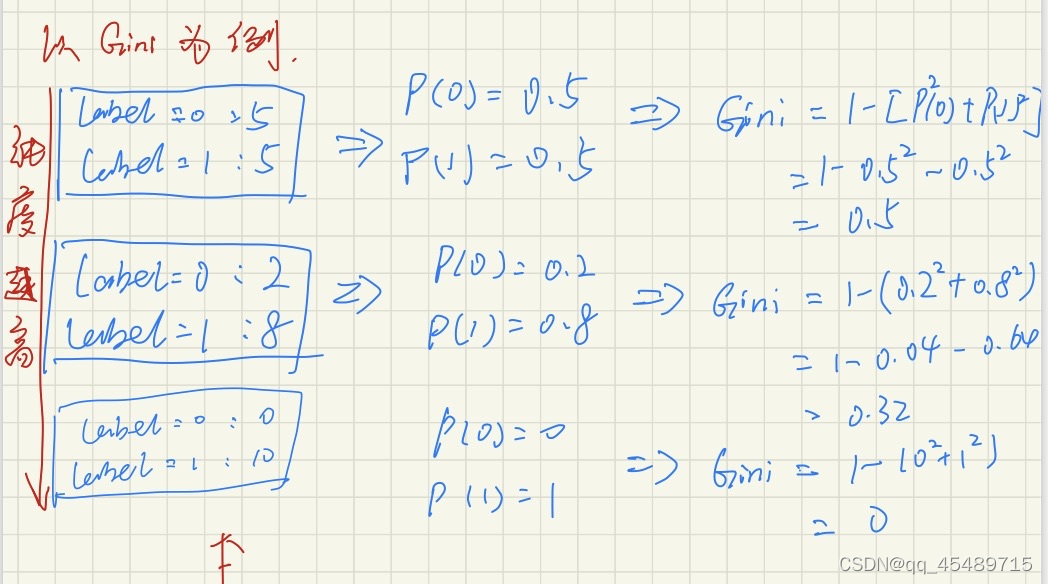 以 Gini 为例.
纯度越高
Label = 0 : 5
Label = 1 : 5
⇒
P(0) = 0.5
P(1) = 0.5
⇒
Gini = 1 - [P²(0) + P(1)²]
= 1 - 0.5² - 0.5²
= 0.5
Label = 0 : 2
Label = 1 : 8
⇒
P(0) = 0.2
P(1) = 0.8
⇒
Gini = 1 - (0.2² + 0.8²)
= 1 - 0.04 - 0.64
= 0.32
Label = 0 : 0
Label = 1 : 10
P(0) = 0
P(1) = 1
⇒
Gini = 1 - (0² + 1²)
= 0
CSDN@qq_45489715